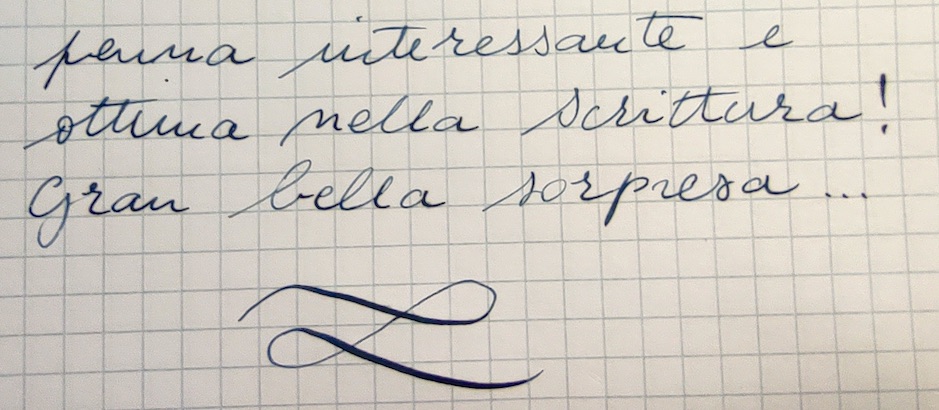 penna interessante e
ottima nella scrittura!
Gran bella sorpresa ...